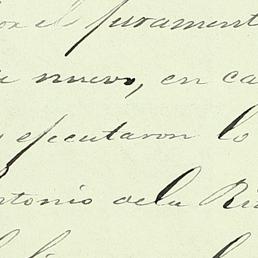 el juramento
nuevo, en ca
y ejecutaron lo
ntonio dela Ri